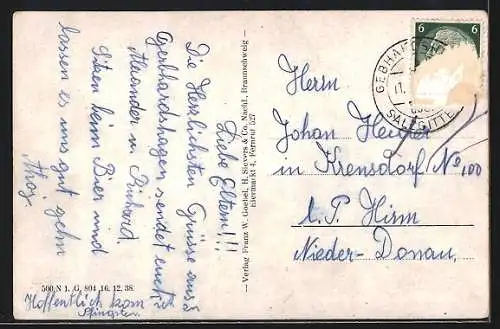 Liebe Eltern!!!
Die Herzlichsten Grüsse aus
Gebhardshagen sendet euch
Alexander u. Richard.
Sitzen beim Bier und
lassen es uns gut gehn
Ahoj
Hoffentlich kom ich
Pfingsten
500 N 1. G. 804 16. 12. 38.
— Verlag Franz W. Goebel, H. Siewers & Co. Nachf., Braunschweig —
Eiermarkt 4, Fernruf 527
6 6
GEBHARDSH
SALZGITTE
Herrn
Johan
in Krensdorf No 100
b. P. Hirm
Nieder-Donau.